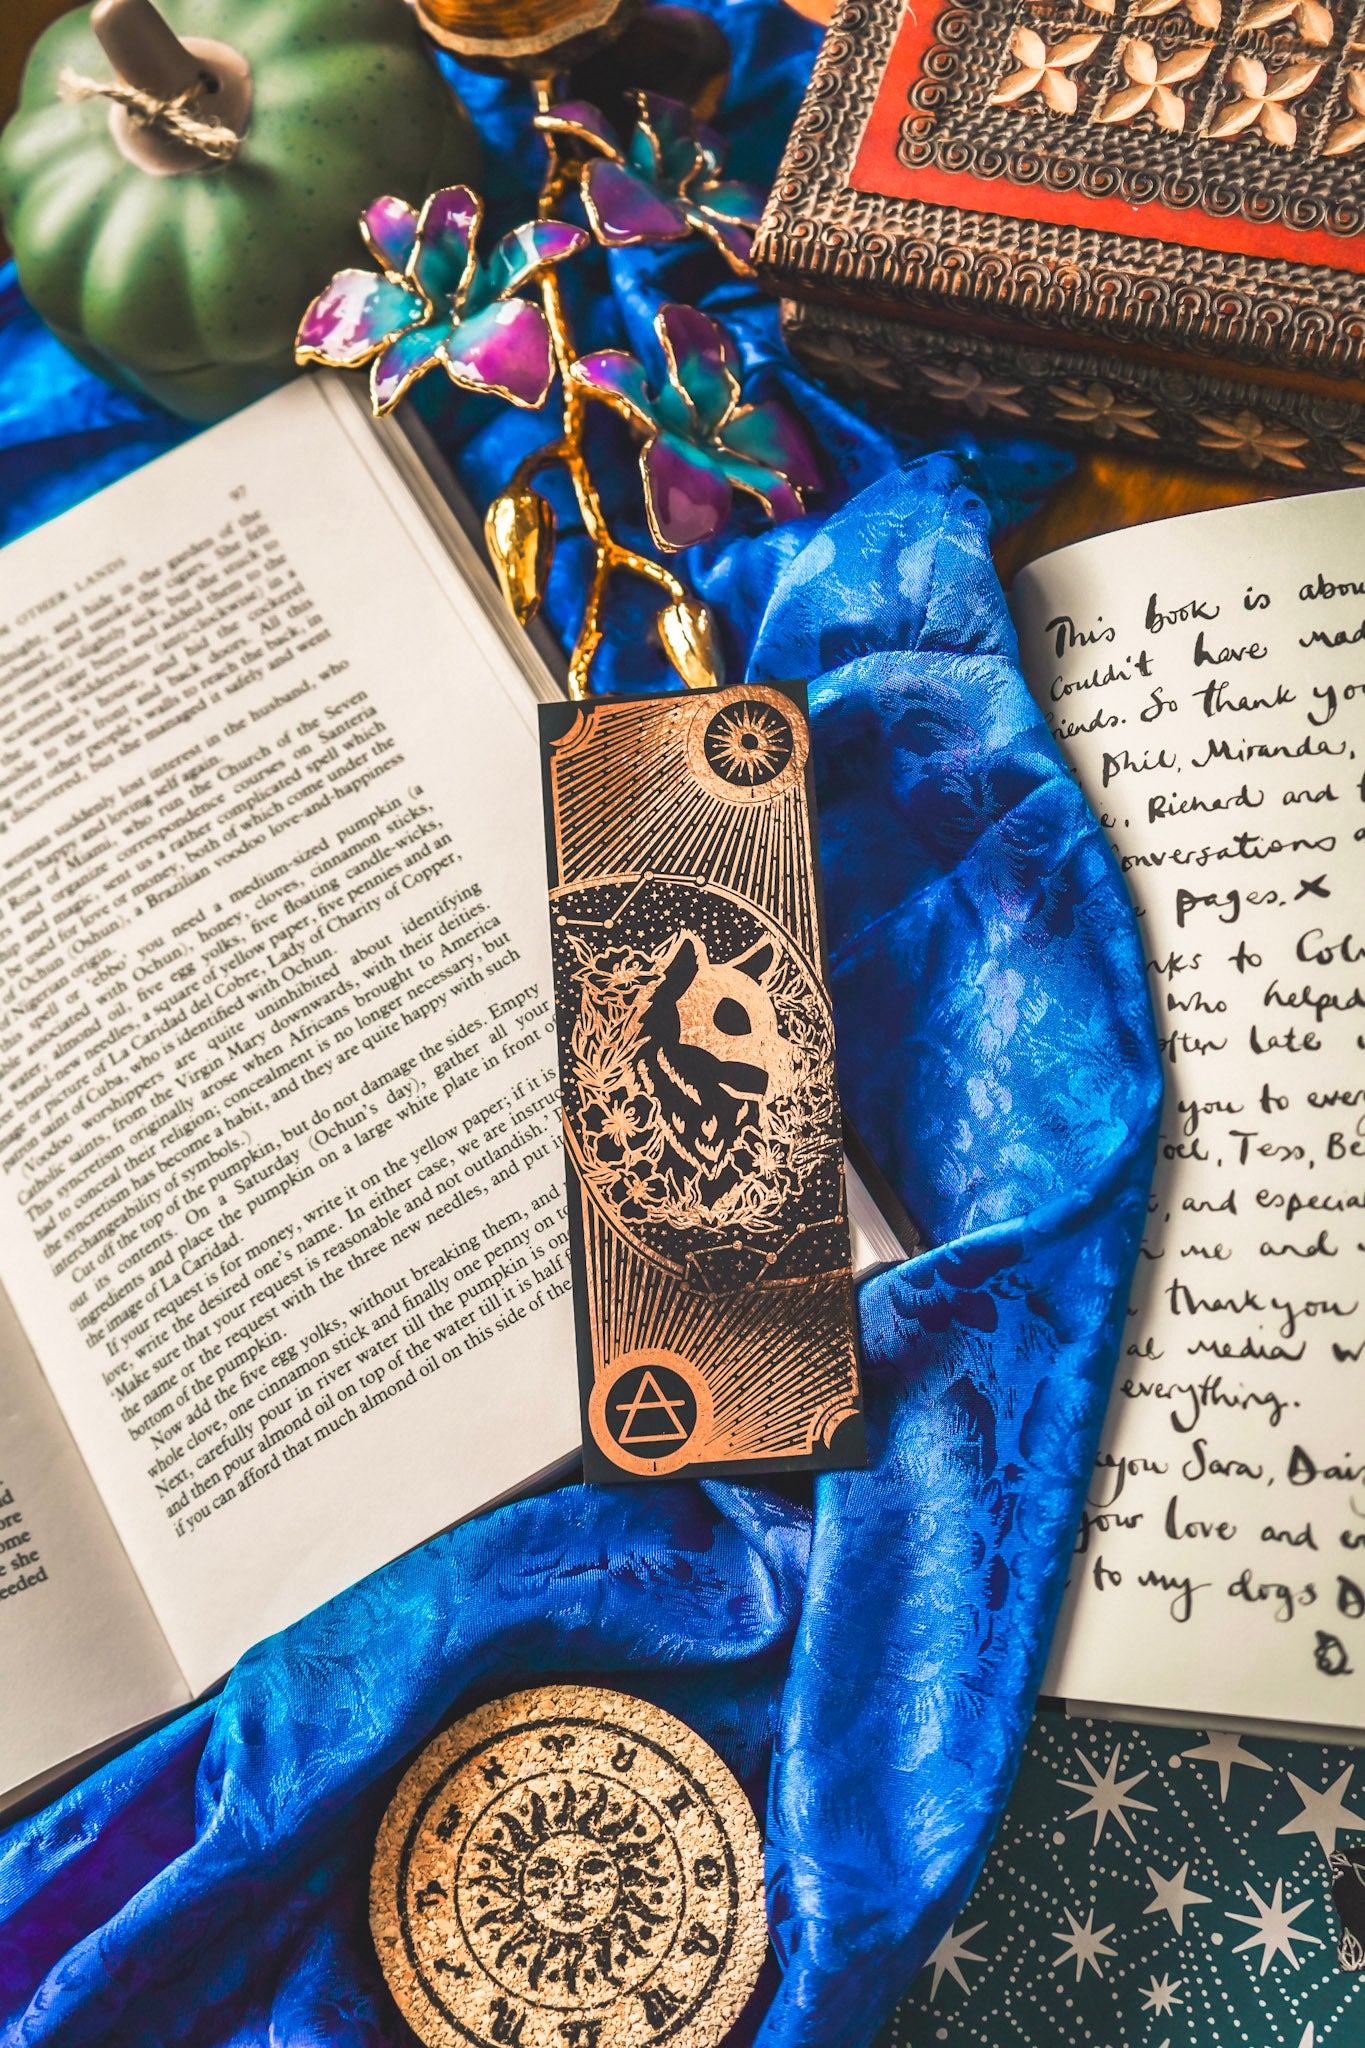 OTHER LANDS
97
night, and hide in the garden of the
and smoke the cigars. She felt
I had the
(anti-clockwise) in a
cockerel
All this
over other people's walls to reach the back, in
discovered, but she managed it safely and went
woman suddenly lost interest in the husband, who
former happy and loving self again the Church of the Seven
of Miami, who run correspondence courses on Santeria
and organize
up and magic, sent us a rather complicated spell which
be used for love or money, both of which come under the
of Ochun (Oshun), a Brazilian voodoo love-and-happiness
of Nigerian origin.
this spell or 'ebbo' you need a medium-sized pumpkin (a
able associated with Ochun), honey, cloves, cinnamon sticks,
water, almond oil, five egg yolks, five floating candle-wicks,
brand-new needles, a square of yellow paper, five pennies and an
image or picture of La Caridad del Cobre, Lady of Charity of Copper,
patron saint of Cuba, who is identified with Ochun.
Voodoo worshippers are quite uninhibited about identifying
Catholic saints, from the Virgin Mary downwards, with their deities.
This syncretism originally arose when Africans brought to America
had to conceal their religion; concealment is no longer necessary, but
the syncretism has become a habit, and they are quite happy with such
interchangeability of symbols.)
Cut off the top of the pumpkin, but do not damage the sides. Empty
out its contents. On a Saturday (Ochun's day), gather all your
ingredients and place the pumpkin on a large white plate in front of
the image of La Caridad.
If your request is for money, write it on the yellow paper; if it is
love, write the desired one's name. In either case, we are
'Make sure that your request is reasonable and not outlandish.'
the name or the request with the three new needles, and put
bottom of the pumpkin.
Now add the five egg yolks, without breaking them, and
whole clove, one cinnamon stick and finally one penny on
Next, carefully pour in river water till the pumpkin is
and then pour almond oil on top of the water till it is half
if you can afford that much almond oil on this side of the
she
This book is
Couldn't have
friends. So thank
Phil, Miranda,
Richard and
conversations
pages. x
to
who helped
often late
you to
Joel, Tess,
, and
me and
thank you
media
everything.
Sara,
your love and
to my dogs